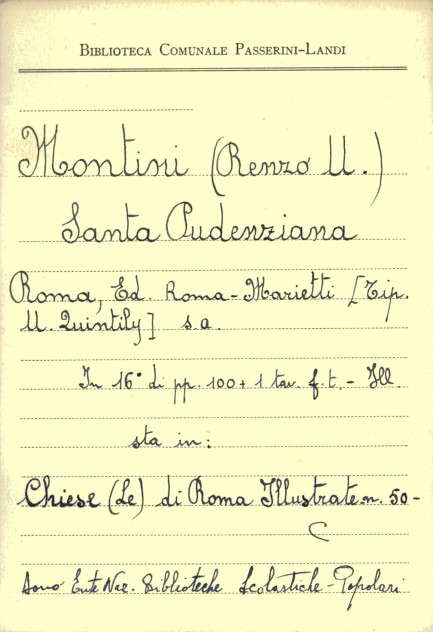 BIBLIOTECA COMUNALE PASSERINI-LANDI
Montini (Renzo U.)
Santa Pudenziana
Roma, Ed. Roma-Marietti [Tip.
U. Quintily] s.a.
In 16° di pp. 100+1 tav. f.t. - Ill.
sta in:
Chiese (Le) di Roma Illustrate n. 50-
C
Dono Ente Naz. Biblioteche Scolastiche-Popolari